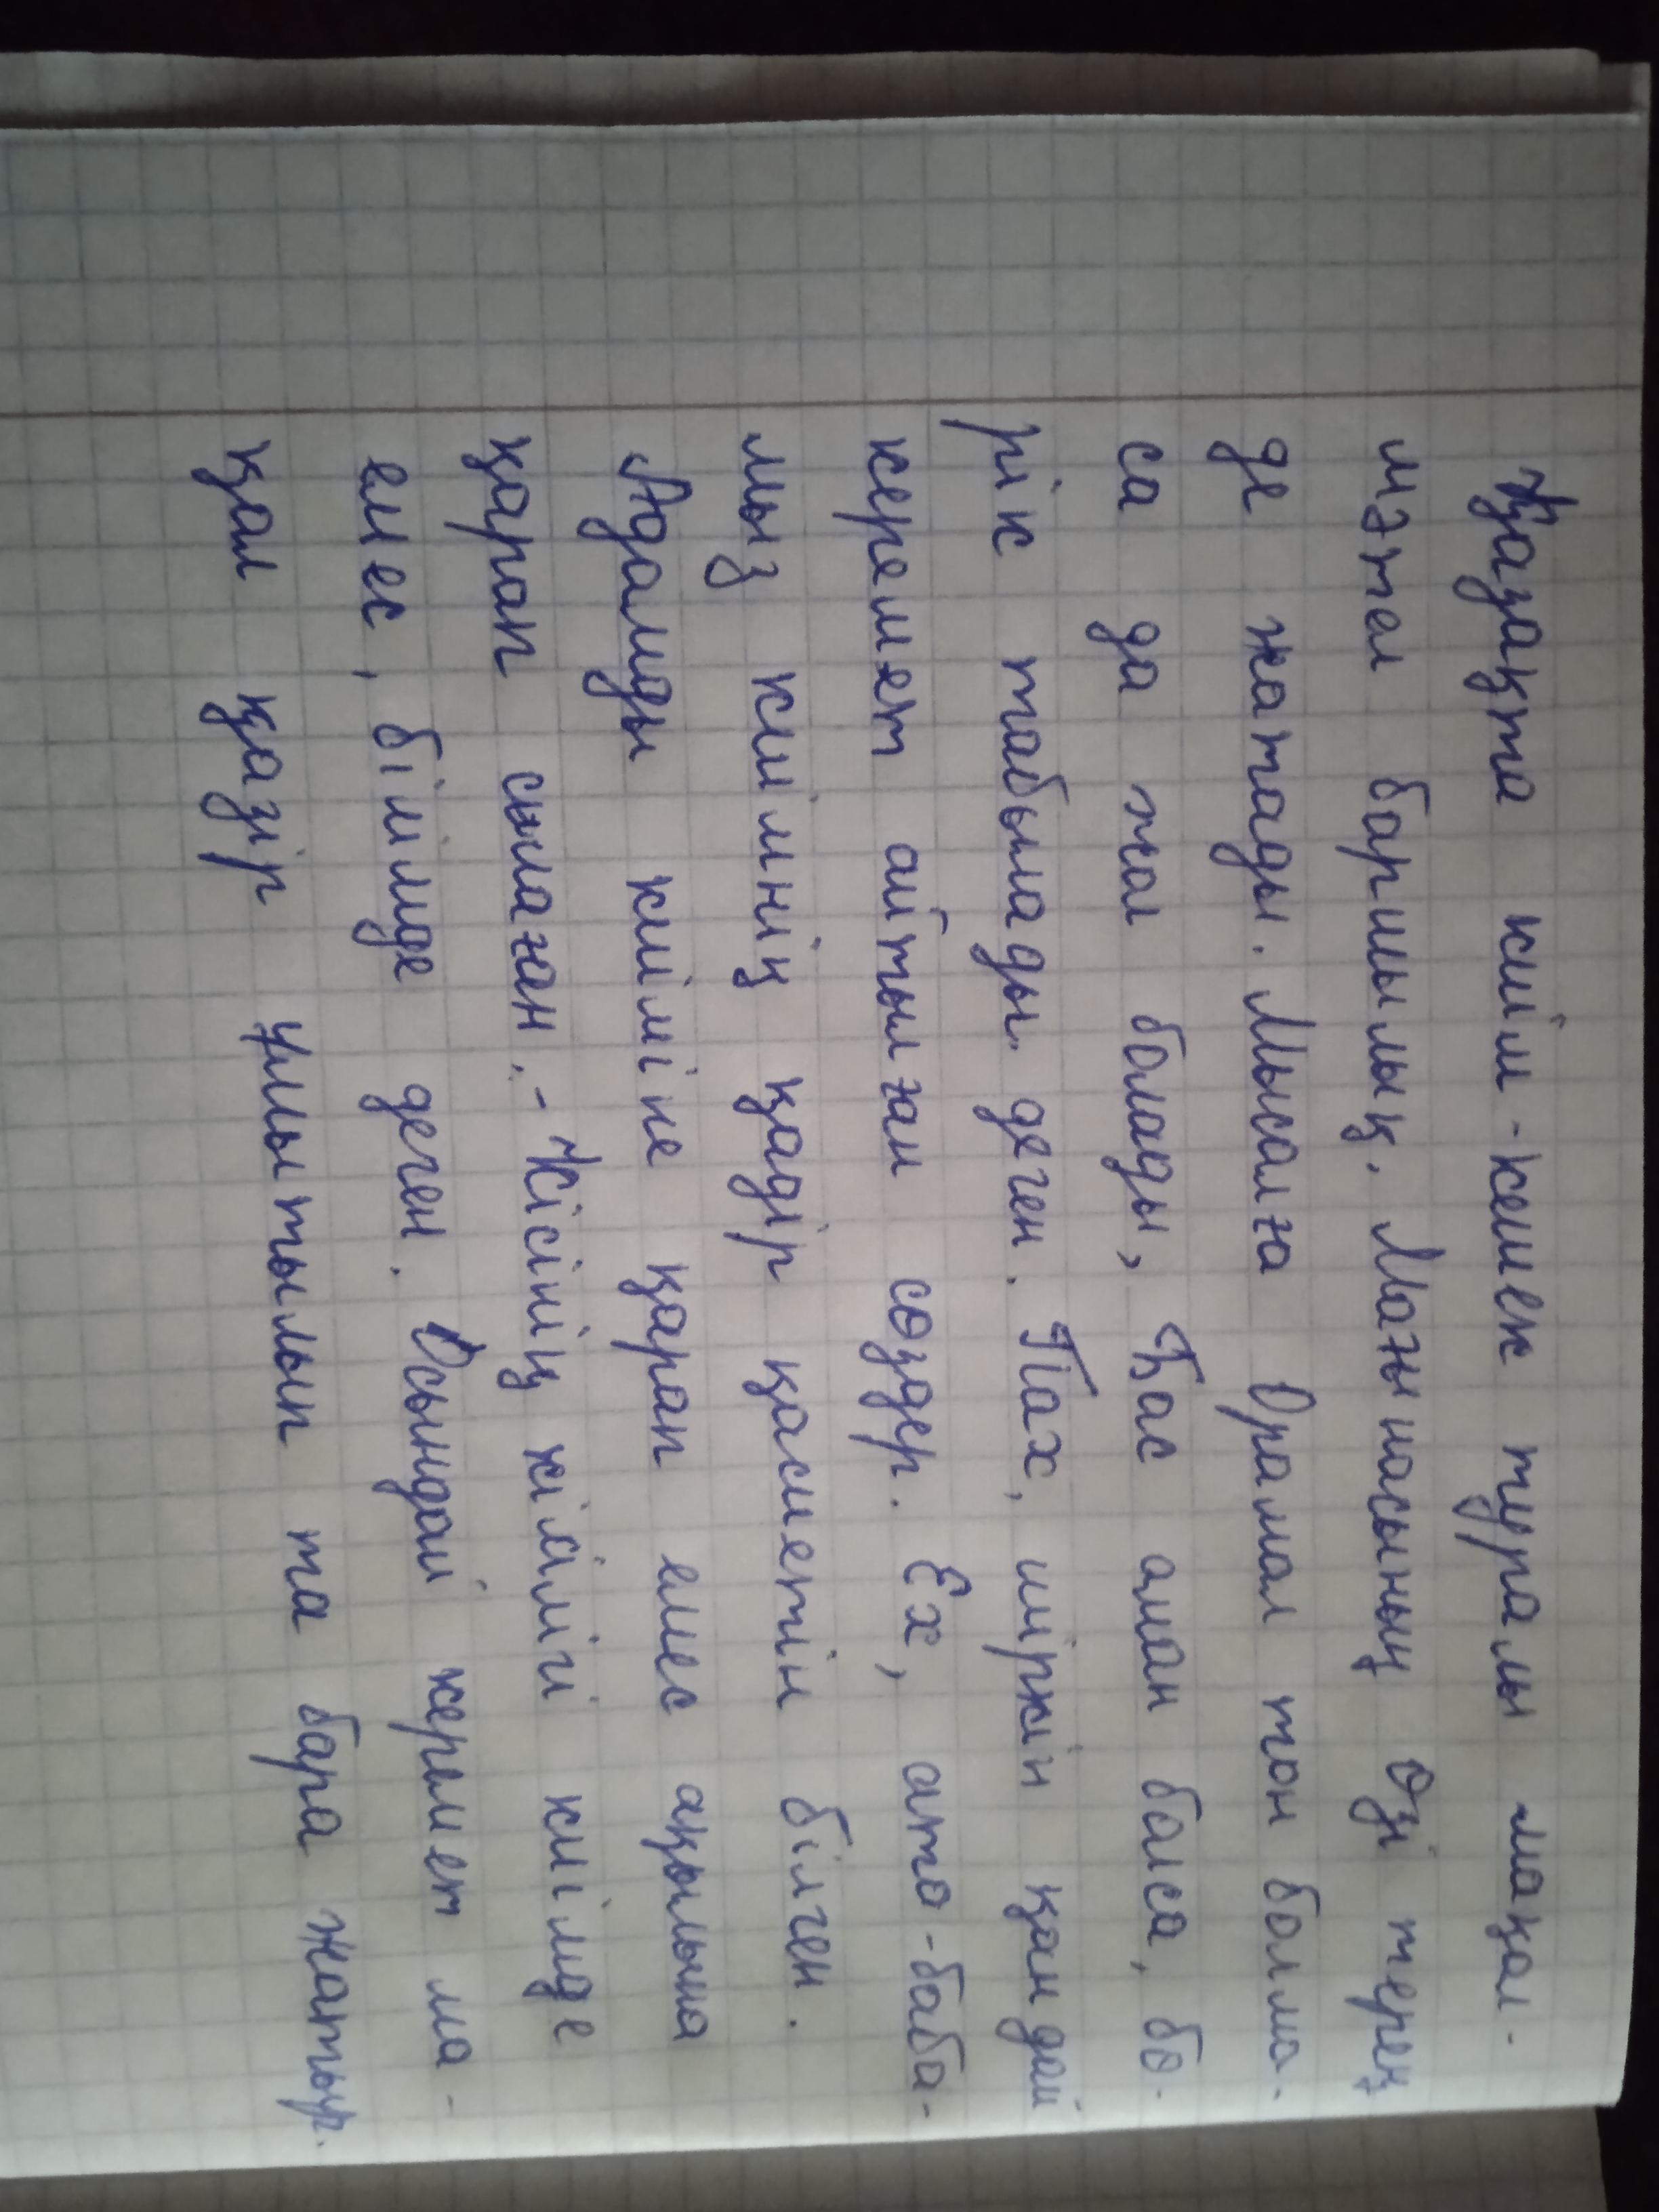 Қазақта киім-кешек туралы мақал-
мәтел баршылық. Мағынасының өзі терең
де жатады. Мысалға Орамал тон болма-
са да жол болады, Бас аман болса, бө-
рік табылады. деген. Пах, шіркін қандай
керемет айтылған сөздер. Ех, ата-баба-
мыз киімнің қадір қасиетін білген.
Адамды киіміне қарап емес ақылына
қарап сынаған. - Кісінің кісілігі киімде
емес, білімде деген. Осындай керемет ма-
қал қазір ұмытылып та бара жатыр.